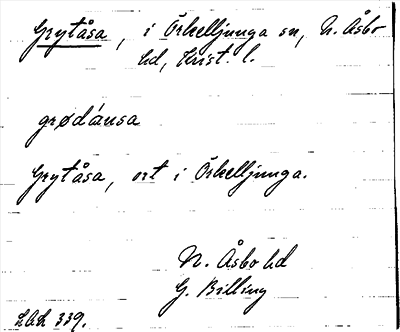 Grytåsa, i Örkelljunga sn, N. Åsbo
hd, Krist. l.
grødåusa
Grytåsa, ort i Örkelljunga.
N. Åsbo hd
G. Billing
LAL 339.